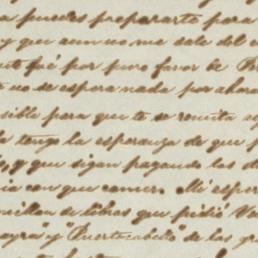 a puedes prepararte para
y que aun no me sale del
fué por puro favor de
no se espera nada por ahora
sible para que te se remita
tengo la esperanza de que
y que sigan pagando las
con que comer. Mi esper
millon de libras que pidió
ayra" y "Puertocabello" de las gra